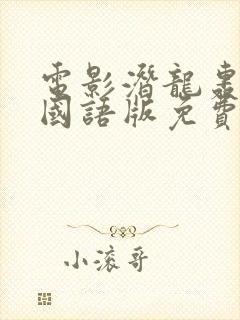 電影潛龍轟
國語版免費
小滚哥